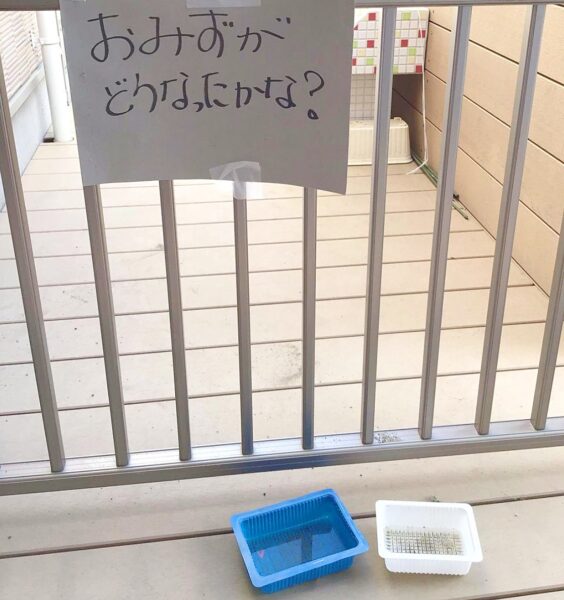 おみずが
どうなったかな?